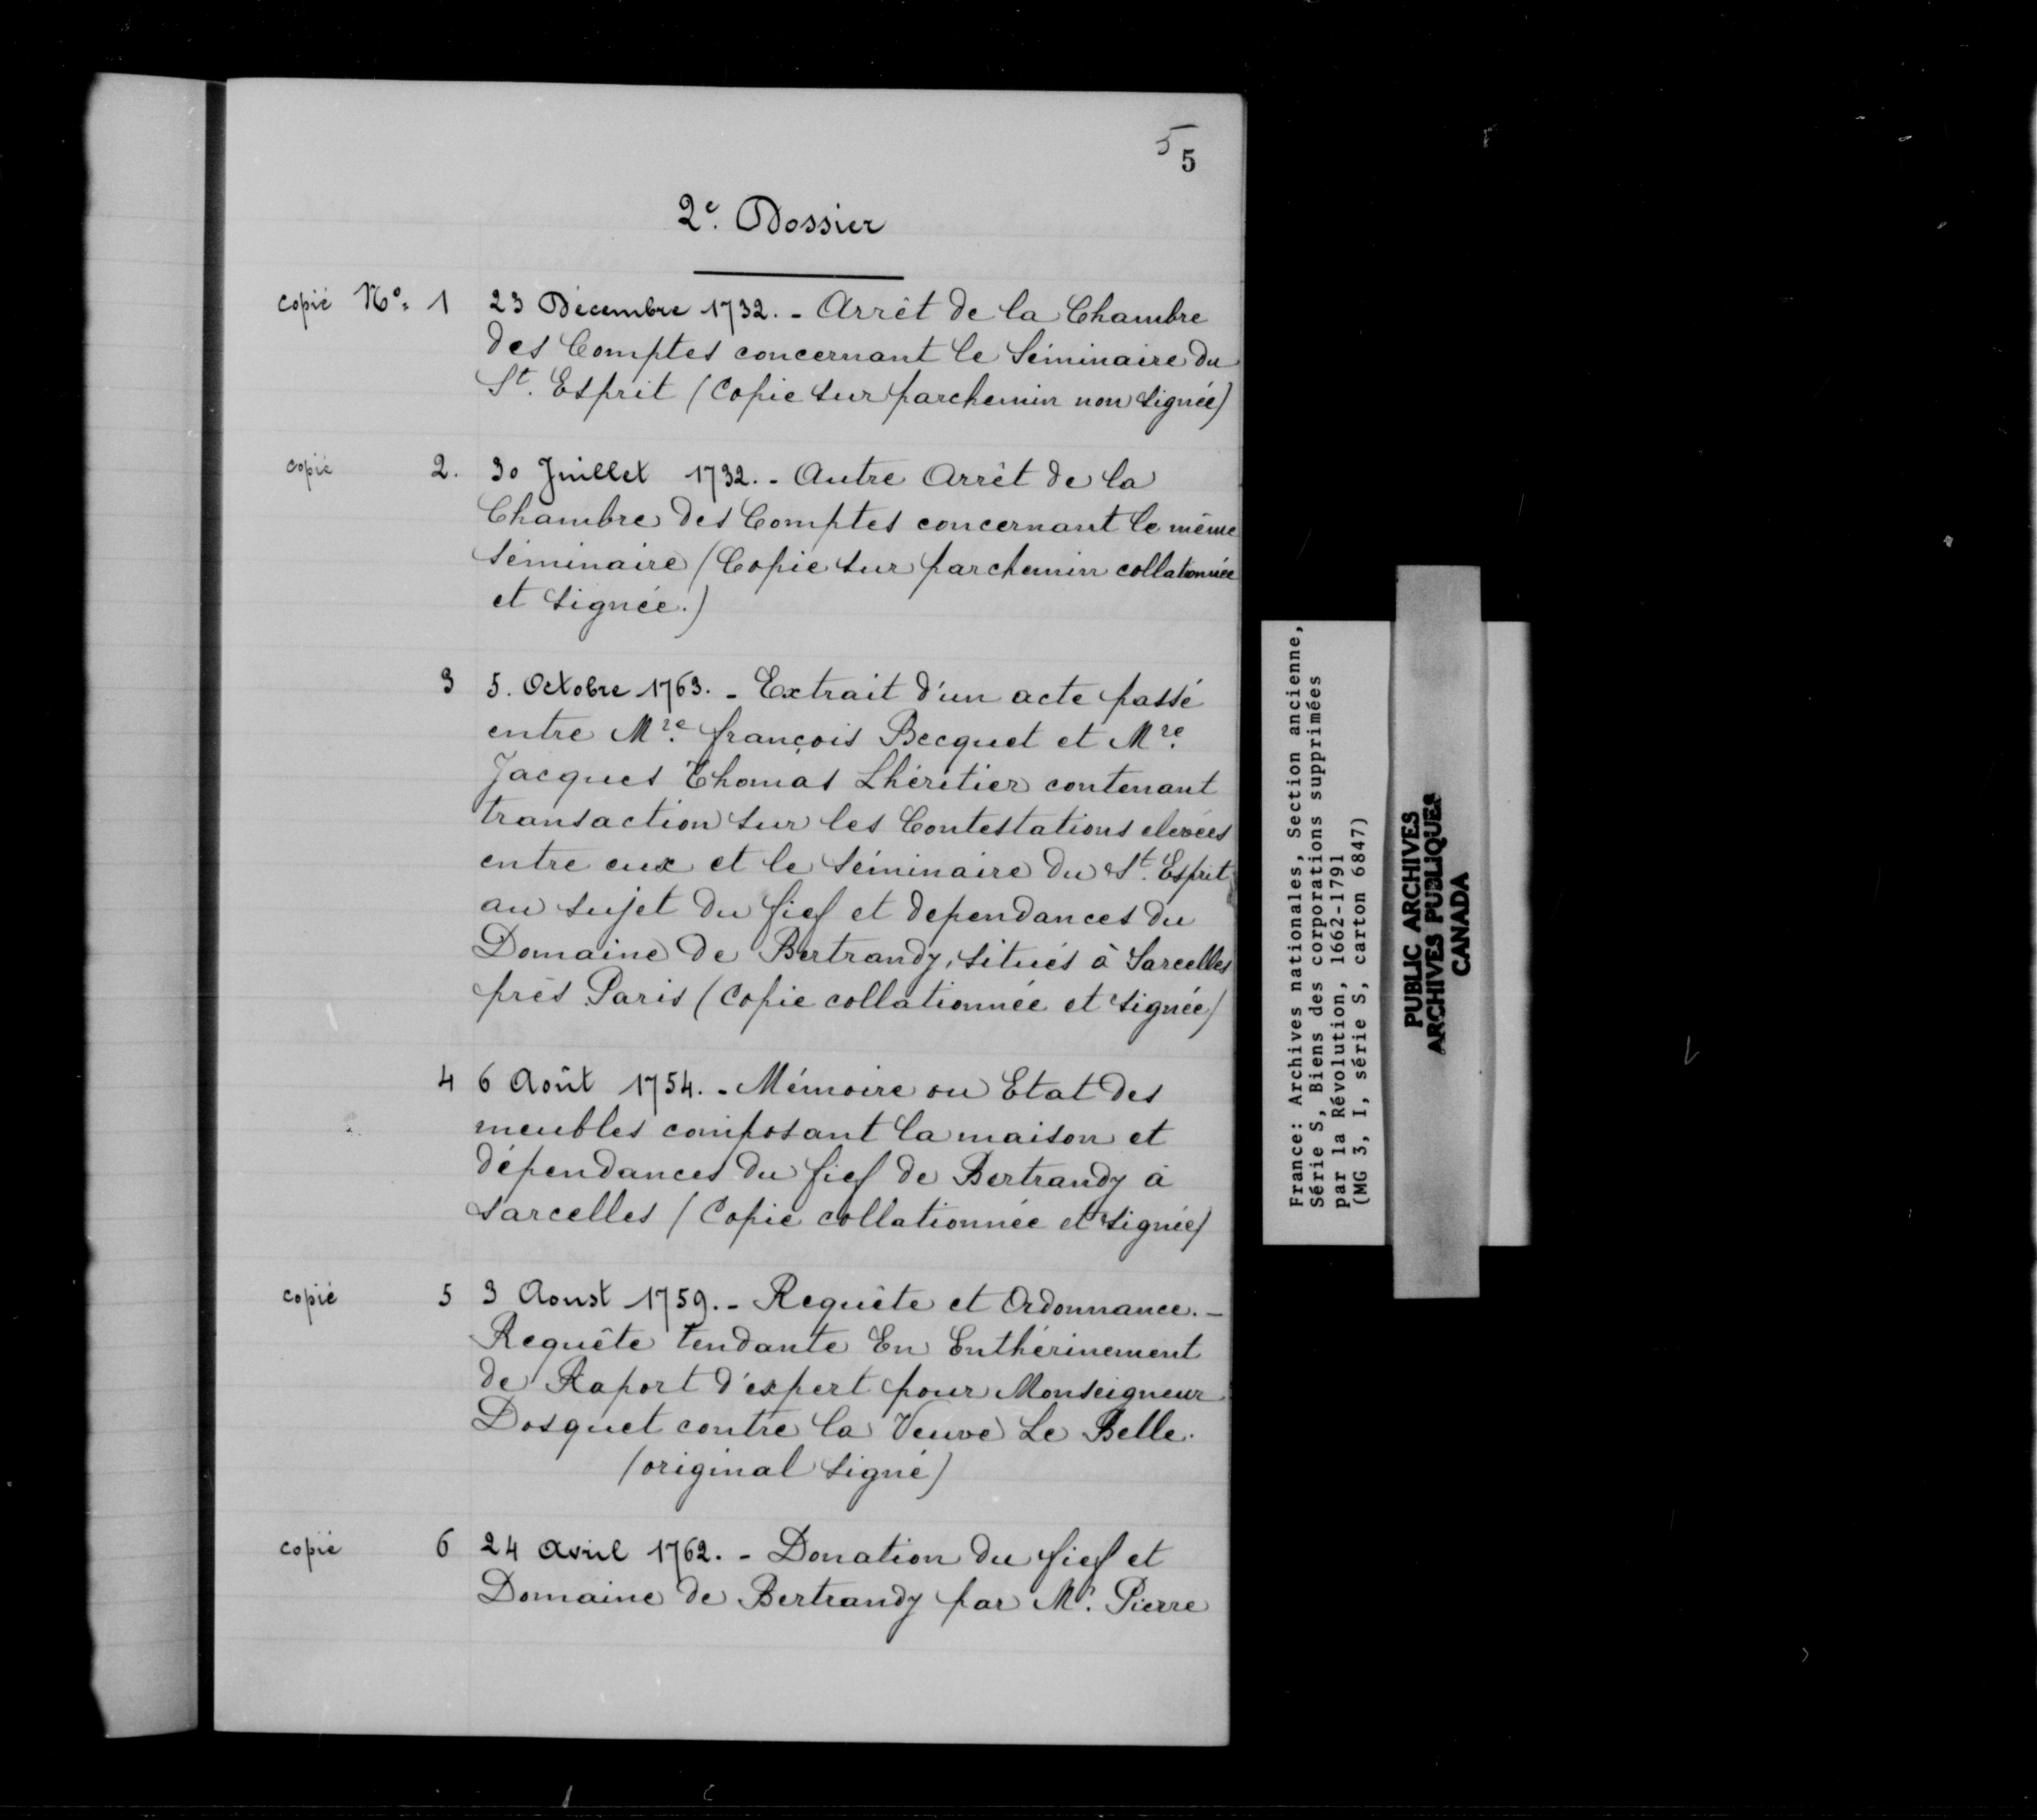 5
5
2e. Dossier
copié No. 1 23 Décembre 1732. - Arrêt de la Chambre
des Comptes concernant le Séminaire du
St. Esprit (Copie sur parchemin non signée)
copié 2. 30 Juillet 1732. - Autre Arrêt de la
Chambre des Comptes concernant le même
Séminaire (Copie sur parchemin collationnée
et signée.)
3 5. Octobre 1763. - Extrait d'un acte passé
entre Mre. françois Becquet et Mre.
Jacques Thomas Lhéritier contenant
transaction sur les Contestations elevées
entre eux et le Séminaire du St. Esprit
au sujet du fief et dependances du
Domaine de Bertrandy, situés à Sarcelles
près Paris (Copie collationnée et signée)
4 6 Août 1754. - Mémoire ou Etat des
meubles composant la maison et
dépendances du fief de Bertrandy à
Sarcelles (Copie collationnée et signée)
copié 5 3 Aoust 1759. - Requête et Ordonnance. -
Requête tendante En Enthérinement
de Raport d'expert pour Monseigneur
Dosquet contre la Veuve Le Belle.
(original signé)
copié 6 24 avril 1762. - Donation du fief et
Domaine de Bertrandy par Mr. Pierre
France: Archives nationales, Section ancienne,
Série S, Biens des corporations supprimées
par la Révolution, 1662-1791
(MG 3, I, série S, carton 6847)
PUBLIC ARCHIVES
ARCHIVES PUBLIQUES
CANADA